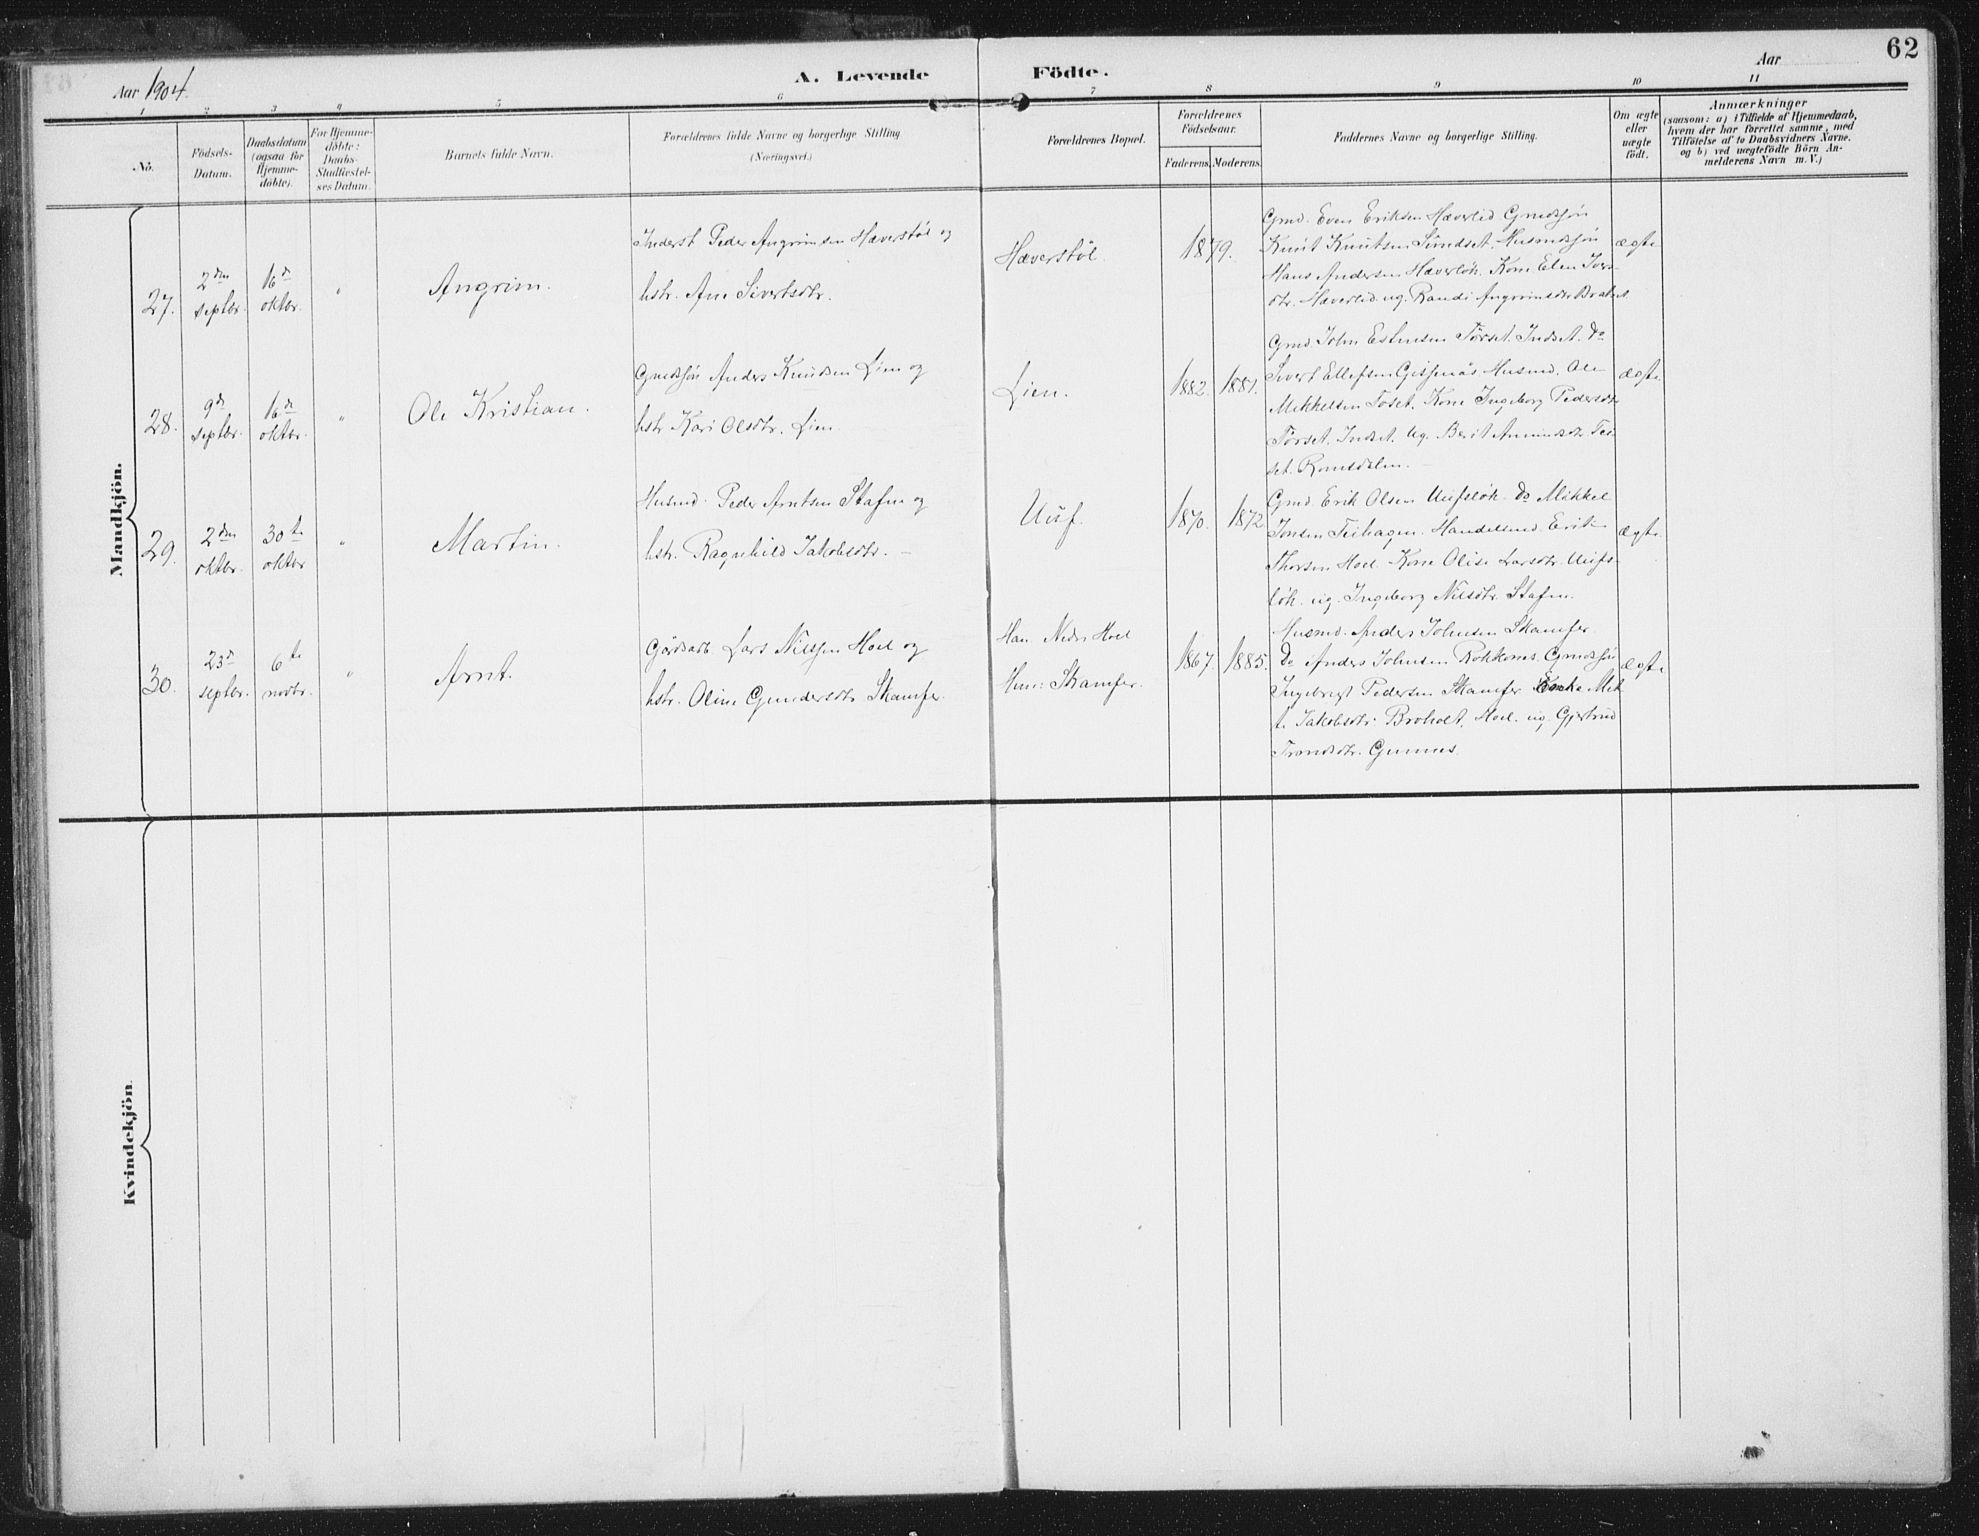 62
Aar 1904.
A. Levende Födte.
Aar
1 2 3 4 5 6 7 8 9 10 11
No.
Födsels-Datum.
Daabsdatum (ogsaa for Hjemme-döbte).
For Hjemme-döbte: Daabs-Stadfæstel-ses Datum.
Barnets fulde Navn.
Forældrenes fulde Navne og borgerlige Stilling (Næringsvei.)
Forældrenes Bopæl.
Forældrenes Födselsaar.
Faderens. Moderens.
Faddernes Navne og borgerlige Stilling.
Om ægte eller uægte födt.
Anmærkninger
(saasom: a) i Tilfælde af Hjemmedaab,
hvem der har forrettet samme, med
Tilföielse af to Daabsvidners Navne.
og b) ved uægtefödte Börn An-
melderens Navn m. V.)
Mandkjön.
27.
2den septbr.
16de oktbr.
"
Angrim.
Inderst Peder Angrimsen Hæverstöl og
hstr. Ane Sivertsdtr.
Hæverstöl.
1879.
Gmd. Even Eriksen Hæverlid Gmdsjön
Knut Knutsen Sundset. Husmdsjön
Hans Andersen Hæverlök. Kone Elen Ivers-
dtr. Hæverlid ug. Randi Angrimsdtr
ægte
28.
9de septbr.
16de oktbr.
"
Ole Kristian.
Gmdsjön Anders Knudsen Lien og
hstr Kari Olsdtr. Lien.
Lien.
1882. 1881.
Gmd. John Estensen Törset. Indset. Do
Sivert Ellefsen Gisjenäs Husmd. Ole
Mikkelsen Toset. Kone Ingeborg Pedersdtr
Törset. Indset. Ug. Berit Amundsdtr
set. Romsdalen. —
ægte
29.
2den oktbr.
30te oktbr
"
Martin.
Husmd. Peder Arntsen Stafne og
hstr. Ragnhild Jakobsdtr. —
Uuf.
1870. 1872
Gmd. Erik Olsen Uufslök. Do Mikkel
Jonsen Teihagen. Handelsmd. Erik
Thorsen Hoel. Kone Olise Larsdtr. Uufs-
lök. ug. Ingeborg Nilsdtr. Stafne.
ægte.
30.
23de septbr.
6te novbr.
"
Arnt.
Gårdsarb. Lars Nilssen Hoel og
hstr. Oline Gundersdtr Skamfer.
Han: Nedre Hoel
Hun: Skamfer.
1867. 1885.
Husmd. Anders Johnsen Skamfer
Do Anders Johnsen Rokkones. Gmdsjön
Ingebrigt Pedersen Skamfer. Enke Mek
t. Jakobsdtr. Broholt, Hoel. ug. Gjertrud
Trondsdtr. Gunnes.
ægte
Kvindekjön.